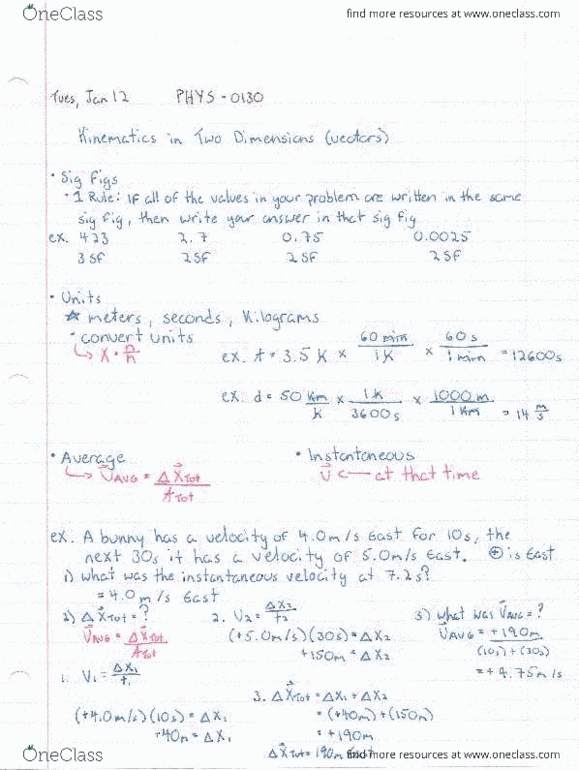 OneClass
find more resources at www.oneclass.com
Tues, Jan 12 PHYS - 0130
Kinematics in Two Dimensions (vectors)
• Sig Figs
• 1 Rule: If all of the values in your problem are written in the same
sig fig, then write your answer in that sig fig
ex. 423 2.7 0.75 0.0025
3 SF 2 SF 2 SF 2 SF
• Units
☆ meters, seconds, kilograms
• convert units
↳ x · n/n
ex. t = 3.5 h × 60 min/1 h × 60 s/1 min = 12600s
ex. d = 50 km/h × 1 h/3600 s × 1000 m/1 km = 14 m/s
• Average • Instantaneous
↳ v⃗AVG = Δx⃗TOT/tTOT v⃗ ← at that time
ex. A bunny has a velocity of 4.0m/s East for 10s, the
next 30s it has a velocity of 5.0m/s East. ⊕ is East
1) what was the instantaneous velocity at 7.2s?
= 4.0 m/s East
2) Δx⃗TOT = ?
v⃗AVG = Δx⃗TOT/tTOT
1. V₁ = Δx₁/t₁
(+4.0m/s)(10s) = Δx₁
+40m = Δx₁
2. V₂ = Δx₂/t₂
(+5.0m/s)(30s) = Δx₂
+150m = Δx₂
3. Δx⃗TOT = Δx₁ + Δx₂
= (+40m) + (150m)
= +190m
Δx⃗TOT = 190m East
3) what was v⃗AVG = ?
v⃗AVG = +190m/(10s) + (30s)
= +4.75m/s
OneClass
find more resources at www.oneclass.com